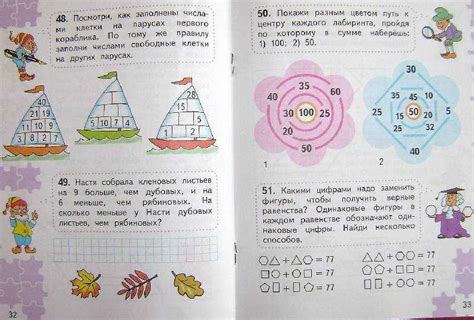 48. Посмотри, как заполнены числа-
ми клетки на парусах первого
кораблика. По тому же правилу
заполни числами свободные клетки
на других парусах.
40
19 21
9 10 11
8 1 9 2
15 10 7 4
18
49. Настя собрала кленовых листьев
на 9 больше, чем дубовых, и на
6 меньше, чем рябиновых. На
сколько меньше у Насти дубовых
листьев, чем рябиновых?
32
50. Покажи разным цветом путь к
центру каждого лабиринта, пройдя
по которому в сумме наберёшь:
1) 100; 2) 50.
35 60
40 65 45
30 100 50
25 20 40
1
30
25 35
45 10 15 50 5
40 20
2
51. Какими цифрами надо заменить
фигуры, чтобы получить верные
равенства? Одинаковые фигуры в
каждом равенстве обозначают оди-
наковые цифры. Найди несколько
способов.
+ = 77
+ = 77
+ = 77
+ = 77
+ = 77
+ = 77
33